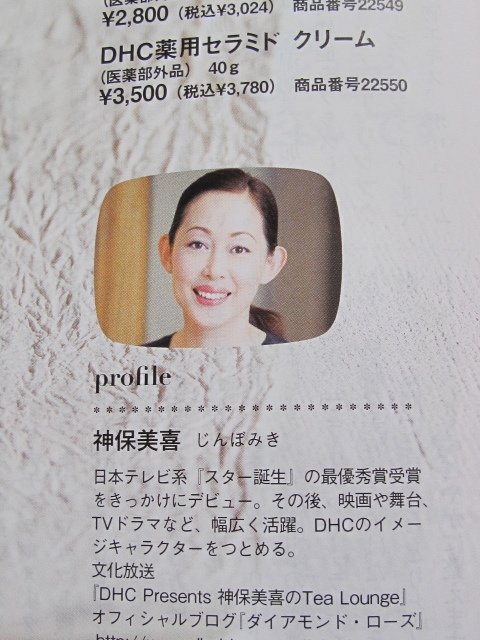 ¥2,800（税込¥3,024） 商品番号22549
DHC薬用セラミド クリーム
（医薬部外品） 40g
¥3,500（税込¥3,780） 商品番号22550
profile
神保美喜 じんぼみき
日本テレビ系『スター誕生』の最優秀賞受賞
をきっかけにデビュー。その後、映画や舞台、
TVドラマなど、幅広く活躍。DHCのイメー
ジキャラクターをつとめる。
文化放送
『DHC Presents 神保美喜のTea Lounge』
オフィシャルブログ『ダイアモンド・ローズ』